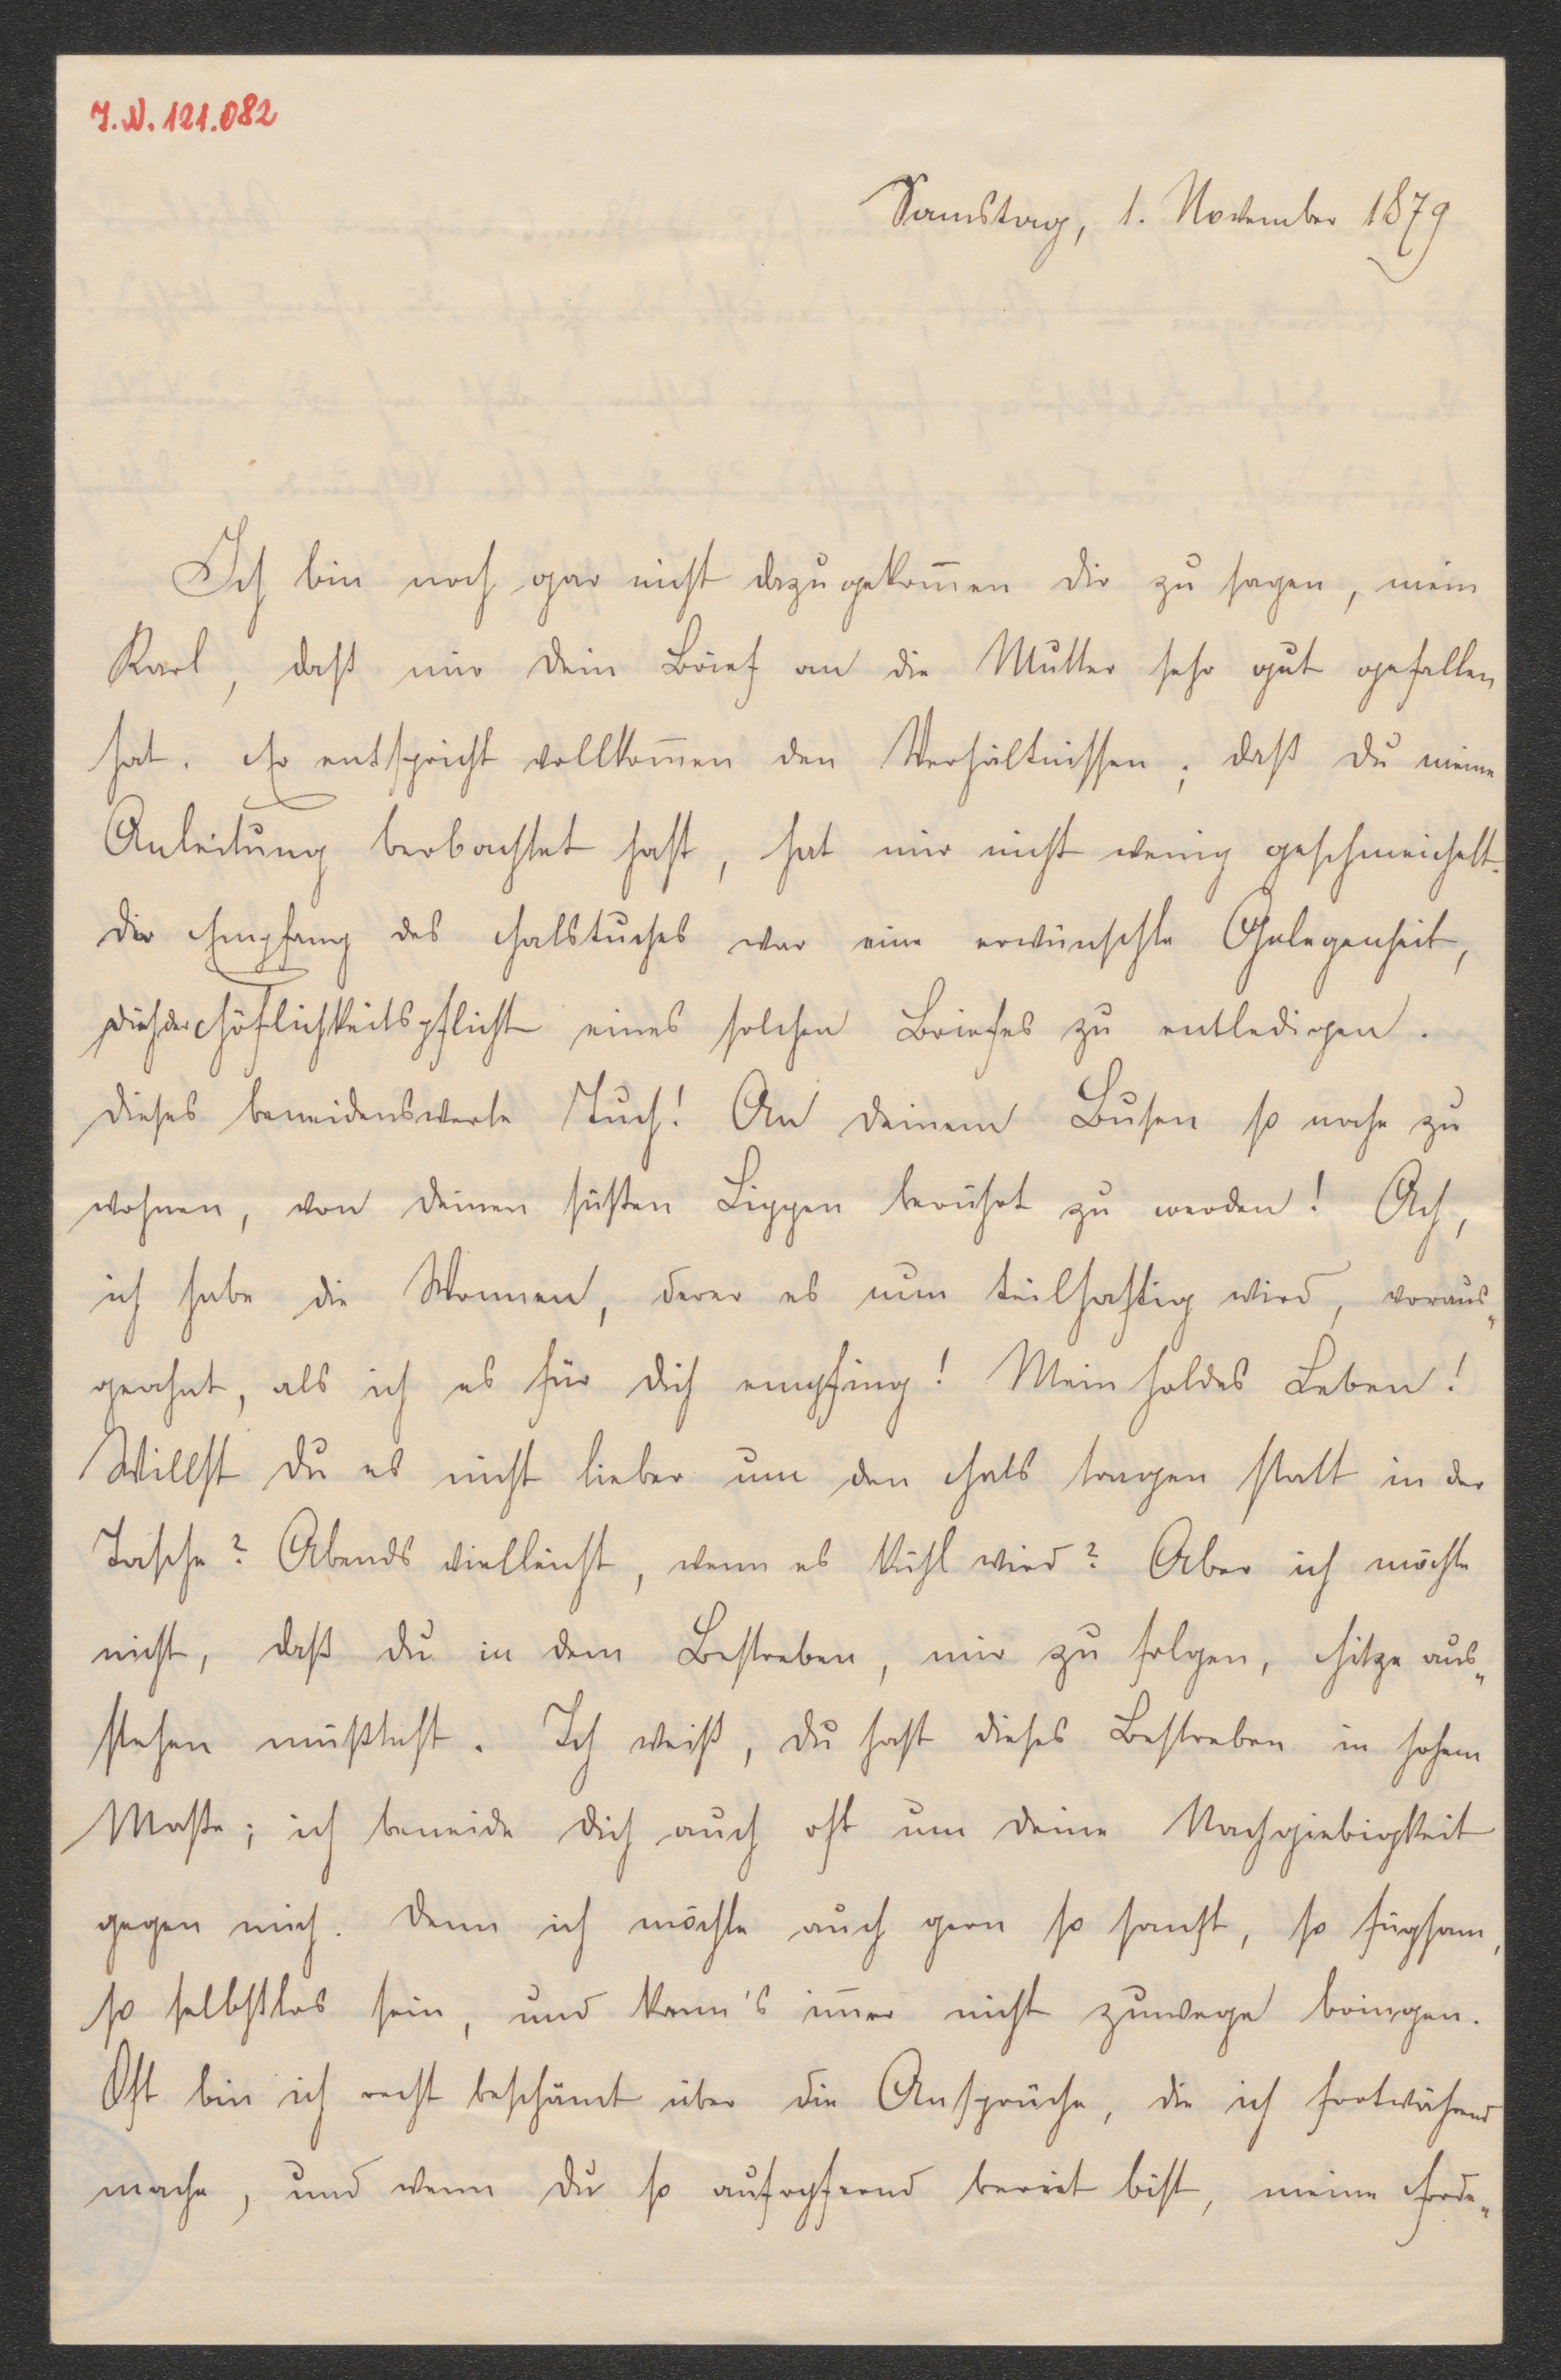 J.N. 121.082
Samstag, 1. November 1879
Ich bin noch gar nicht dazugekom̅en dir zu sagen, mein
Karl, daß mir dein Brief an die Mutter sehr gut gefallen
hat. Er entspricht vollkom̅en den Verhältnissen; daß du meine
Anleitung beobachtet hast, hat mir nicht wenig geschmeichelt.
Der Empfang des Halstuches war eine erwünschte Gelegenheit,
dich der Höflichkeitspflicht eines solchen Briefes zu entledigen.
Dieses beneidenswerte Tuch! An deinem Busen so nahe zu
wohnen, von deinen süßen Lippen berührt zu werden! Ach,
ich habe die Wonnen, derer es nun teilhaftig wird, voraus-
geahnt, als ich es für dich empfing! Mein holdes Leben!
Willst du es nicht lieber um den Hals tragen statt in der
Tasche? Abends vielleicht, wenn es kühl wird? Aber ich möchte
nicht, daß du in dem Bestreben, mir zu folgen, Hitze aus-
stehen müßtest. Ich weiß, du hast dieses Bestreben in hohem
Maße; ich beneide dich auch oft um deine Nachgiebigkeit
gegen mich. Denn ich möchte auch gern so sanft, so fügsam,
so selbstlos sein, und kann's im̅er nicht zuwege bringen.
Oft bin ich recht beschämt über die Ansprüche, die ich fortwährend
mache, und wenn du so aufopfernd bereit bist, meine Forde-